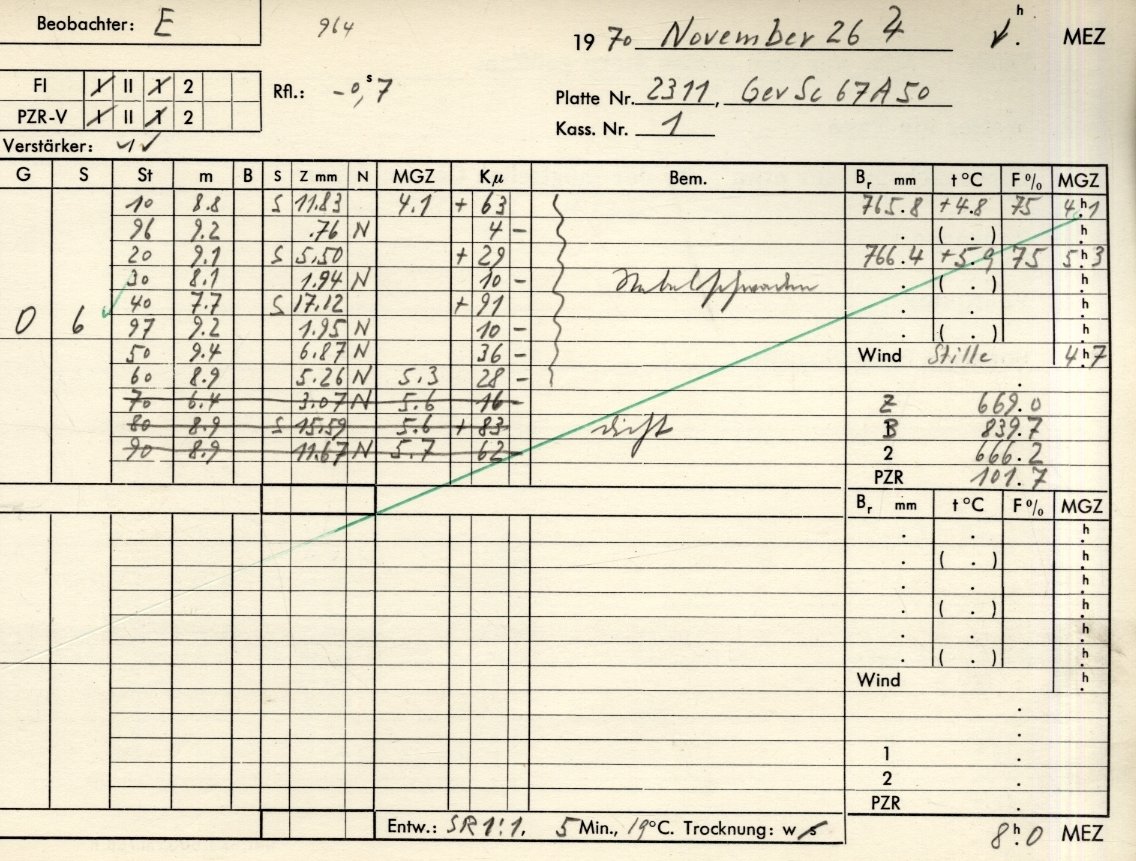 Beobachter: E
964
19 70 November 26 h MEZ
FI I II 1 2
Rfl.: -0,ˢ7
Platte Nr. 2311, GevSc 67A50
PZR-V I II 1 2
Kass. Nr. 1
Verstärker:
G S St m B S Z mm N MGZ Kμ Bem. Bᵣ mm t °C F % MGZ
10 8.8 S 11.83 4.1 + 63 765.8 +4.8 75 4ʰ.1
96 9.2 .76 N 4 - . ( . ) ʰ.
20 9.1 S 5.50 + 29 766.4 +5.9 75 5ʰ.3
30 8.1 1.94 N 10 - Nebelschwaden . ( . ) ʰ.
40 7.7 S 17.12 + 91 . . ʰ.
0 6 97 9.2 1.95 N 10 - . ( . ) ʰ.
50 9.4 6.87 N 36 - Wind Stille 4ʰ.7
60 8.9 5.26 N 5.3 28 - .
70 6.4 3.07 N 5.6 16 - Z 669.0
80 8.9 S 15.59 5.6 + 83 dicht B 839.7
90 8.9 11.67 N 5.7 62 - 2 666.2
PZR 101.7
Bᵣ mm t °C F % MGZ
. . ʰ.
. ( . ) ʰ.
. . ʰ.
. ( . ) ʰ.
. . ʰ.
. ( . ) ʰ.
Wind ʰ.
.
.
1 .
2 .
PZR .
Entw.: SR 1:1, 5 Min., 19°C. Trocknung: w s
8ʰ.0 MEZ